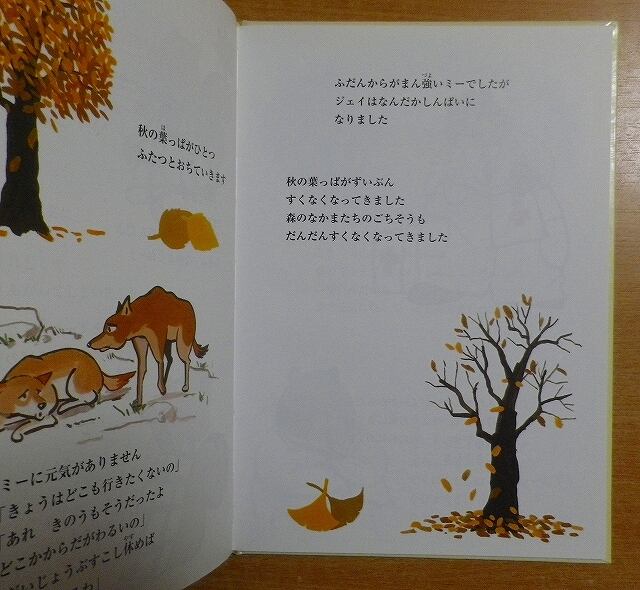 秋の葉っぱがひとつ
ふたつとおちていきます
ミーに元気がありません
「きょうはどこも行きたくないの」
「あれ　きのうもそうだったよ
どこかからだがわるいの」
いじょうぶすこし休めば
ふだんからがまん強いミーでしたが
ジェイはなんだかしんぱいに
なりました
秋の葉っぱがずいぶん
すくなくなってきました
森のなかまたちのごちそうも
だんだんすくなくなってきました